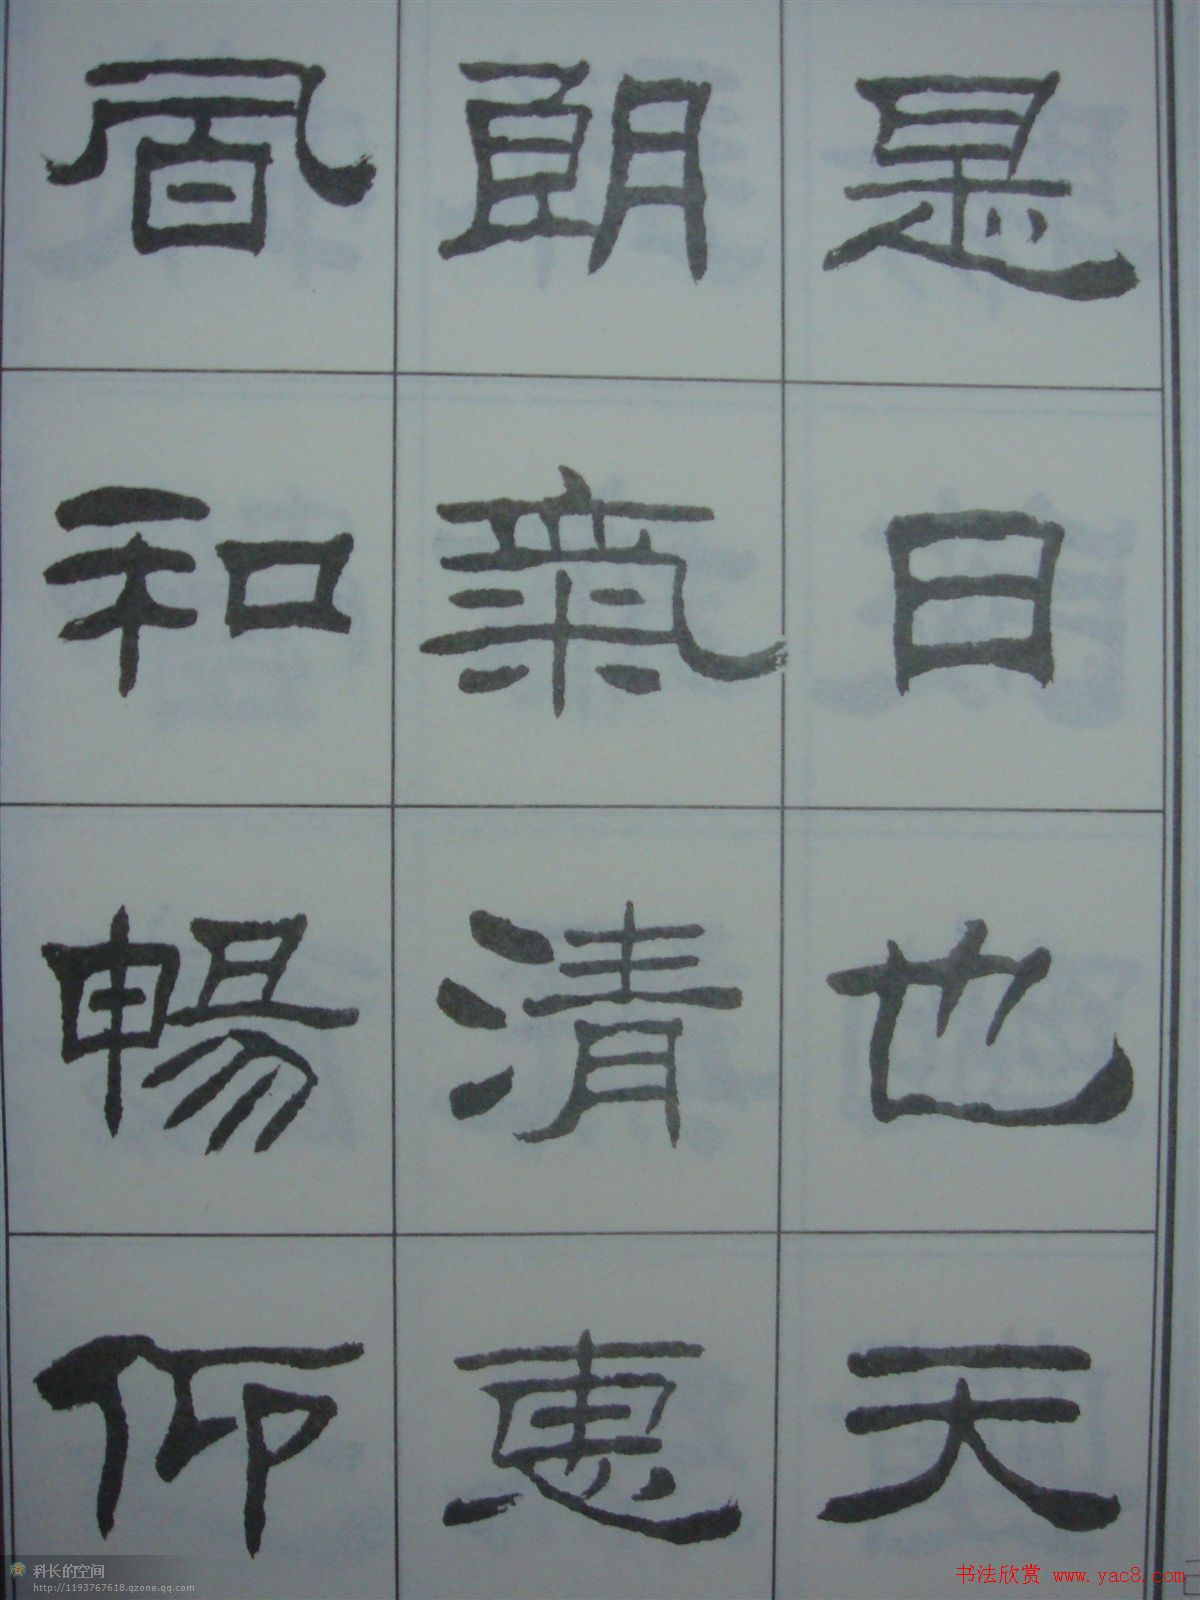 是日也天
朗氣清惠
風和暢仰
科长的空间
http://1193767618.qzone.qq.com
书法欣赏 www.yac8.com